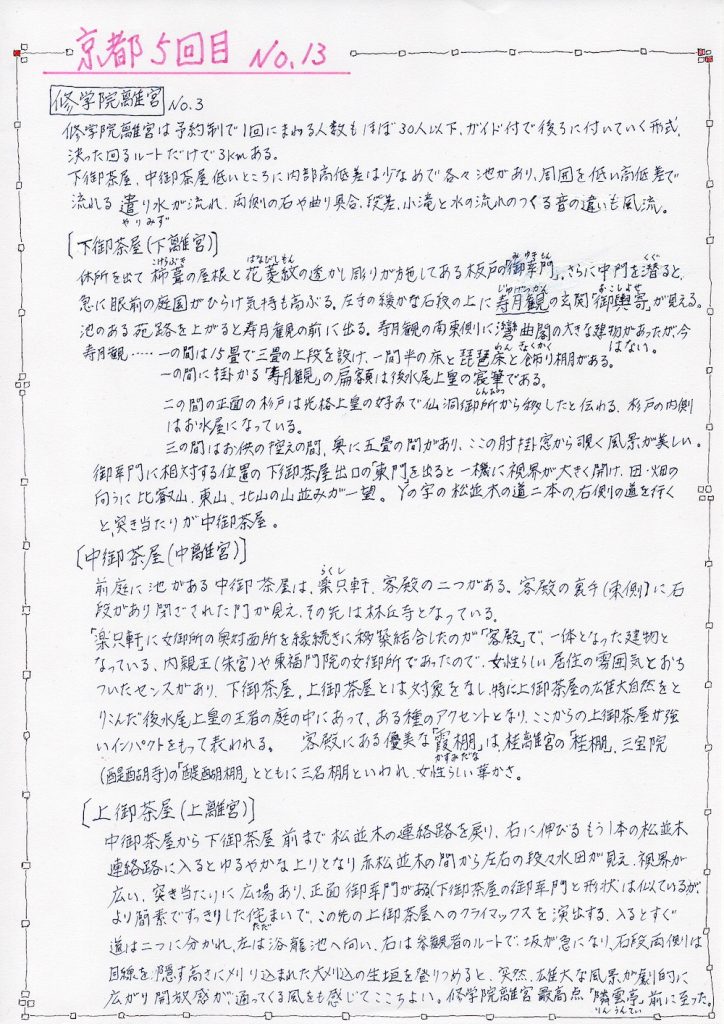 京都5回目 No.13
修学院離宮 No.3
修学院離宮は予約制で1回にまわる人数もほぼ30人以下、ガイド付で後ろに付いていく形式、
決った回るルートだけで3kmある。
下御茶屋、中御茶屋低いところに内部高低差は少なめで各々池があり、周囲を低い高低差で
流れる遣り水が流れ、両側の石や曲り具合、段差、小滝と水の流れのつくる音の違いも風流。
やりみず
[下御茶屋(下離宮)]
こけらぶき はなびしもん みゆきもん くぐ
休所を出て柿葺の屋根と花菱紋の透かし彫りが施してある板戸の「御幸門」、さらに中門を潜ると、
じゅげつかん おこしよせ
急に眼前の庭園がひらけ気持も高ぶる。左手の緩かな石段の上に寿月観の玄関「御輿寄」が見える。
池のある苑路を上がると寿月観の前に出る。寿月観の南東側に彎曲閣の大きな建物があったが、今
わんきょくかく はない。
寿月観……一の間は15畳で三畳の上段を設け、一間半の床と琵琶床と飾り棚がある。
一の間に掛かる「寿月観」の扁額は後水尾上皇の宸筆である。
しんぴつ
二の間の正面の杉戸は光格上皇の好みで仙洞御所から移したと伝わる、杉戸の内側
はお水屋になっている。
三の間はお供の控えの間、奥に五畳の間があり、ここの肘掛窓から覗く風景が美しい。
御幸門に相対する位置の下御茶屋出口の「東門」を出ると一機に視界が大きく開け、田・畑の
向うに比叡山、東山、北山の山並みが一望。 Yの字の松並木の道二本の、右側の道を行く
と、突き当たりが中御茶屋。
[中御茶屋(中離宮)]
らくし
前庭に池がある中御茶屋は、楽只軒、客殿の二つがある。客殿の裏手(東側)に石
段があり閉ざされた門が見え、その先は林丘寺となっている。
「楽只軒」に女御所の奥対面所を縁続きに移築結合したのが「客殿」で、一体となった建物と
なっている、内親王(朱宮)や東福門院の女御所であったので、女性らしい居住の雰囲気とおち
ついたセンスがあり、下御茶屋、上御茶屋とは対象をなし、特に上御茶屋の雄大自然をと
りこんだ後水尾上皇の王者の庭の中にあって、ある種のアクセントとなり、ここからの上御茶屋が強
いインパクトをもって表われる。 客殿にある優美な「霞棚」は、桂離宮の「桂棚」、三宝院
かすみだな
(醍醐寺)の「醍醐棚」とともに三名棚といわれ、女性らしい華かさ。
[上御茶屋(上離宮)]
中御茶屋から下御茶屋前まで松並木の連絡路を戻り、右に伸びるもう1本の松並木
連絡路に入るとゆるやかな上りとなり赤松並木の間から左右の段々水田が見え、視界が
広い、突き当たりに広場あり、正面御幸門がある(下御茶屋の御幸門と形状は似ているが
より簡素ですっきりした佇まいで、この先の上御茶屋へのクライマックスを演出する、入るとすぐ
ただ
道は二つに分かれ、左は浴龍池へ向い、右は参観者のルートで、坂が急になり、石段両側は
目線を隠す高さに刈り込まれた大刈込の生垣を登りつめると、突然、雄大な風景が劇的に
広がり開放感が、通ってくる風をも感じてここちよい。修学院離宮最高点「隣雲亭」前に至った。
りんうんてい